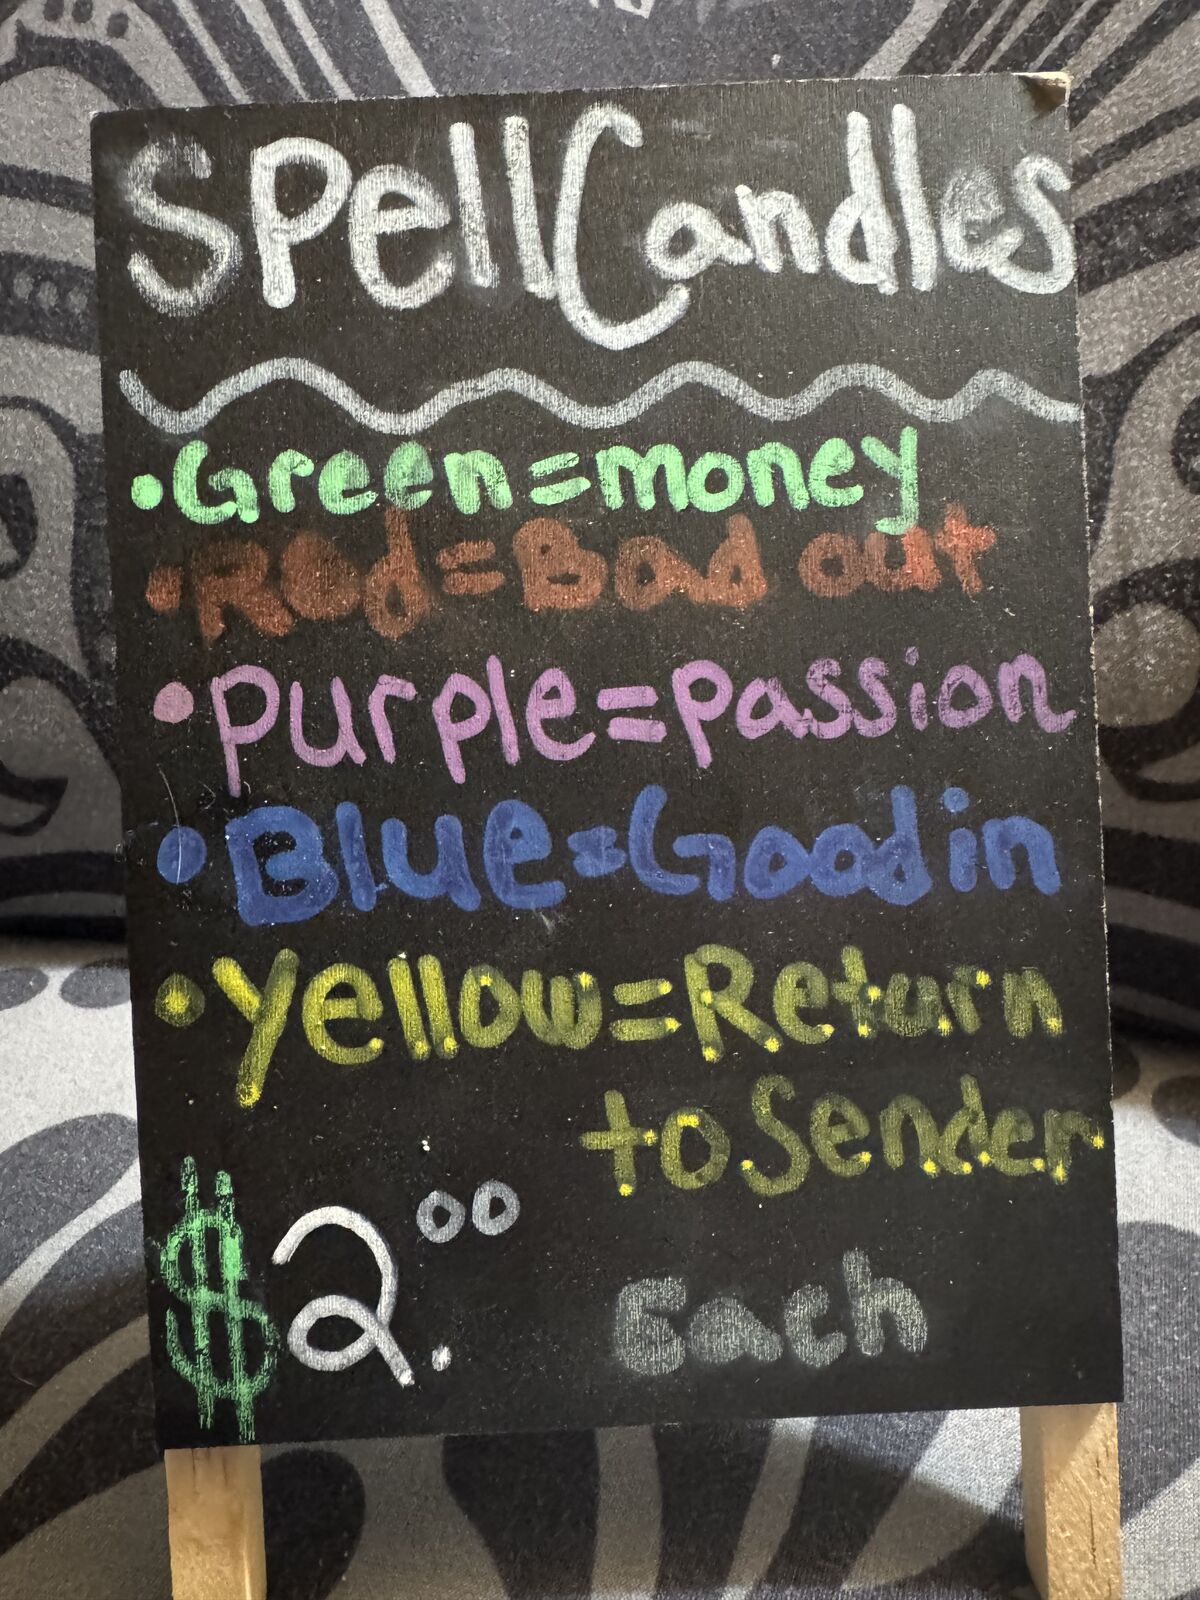 Spell Candles
• Green = money
• Red = Bad out
• Purple = Passion
• Blue = Good in
• Yellow = Return
to Sender
$2.00 Each